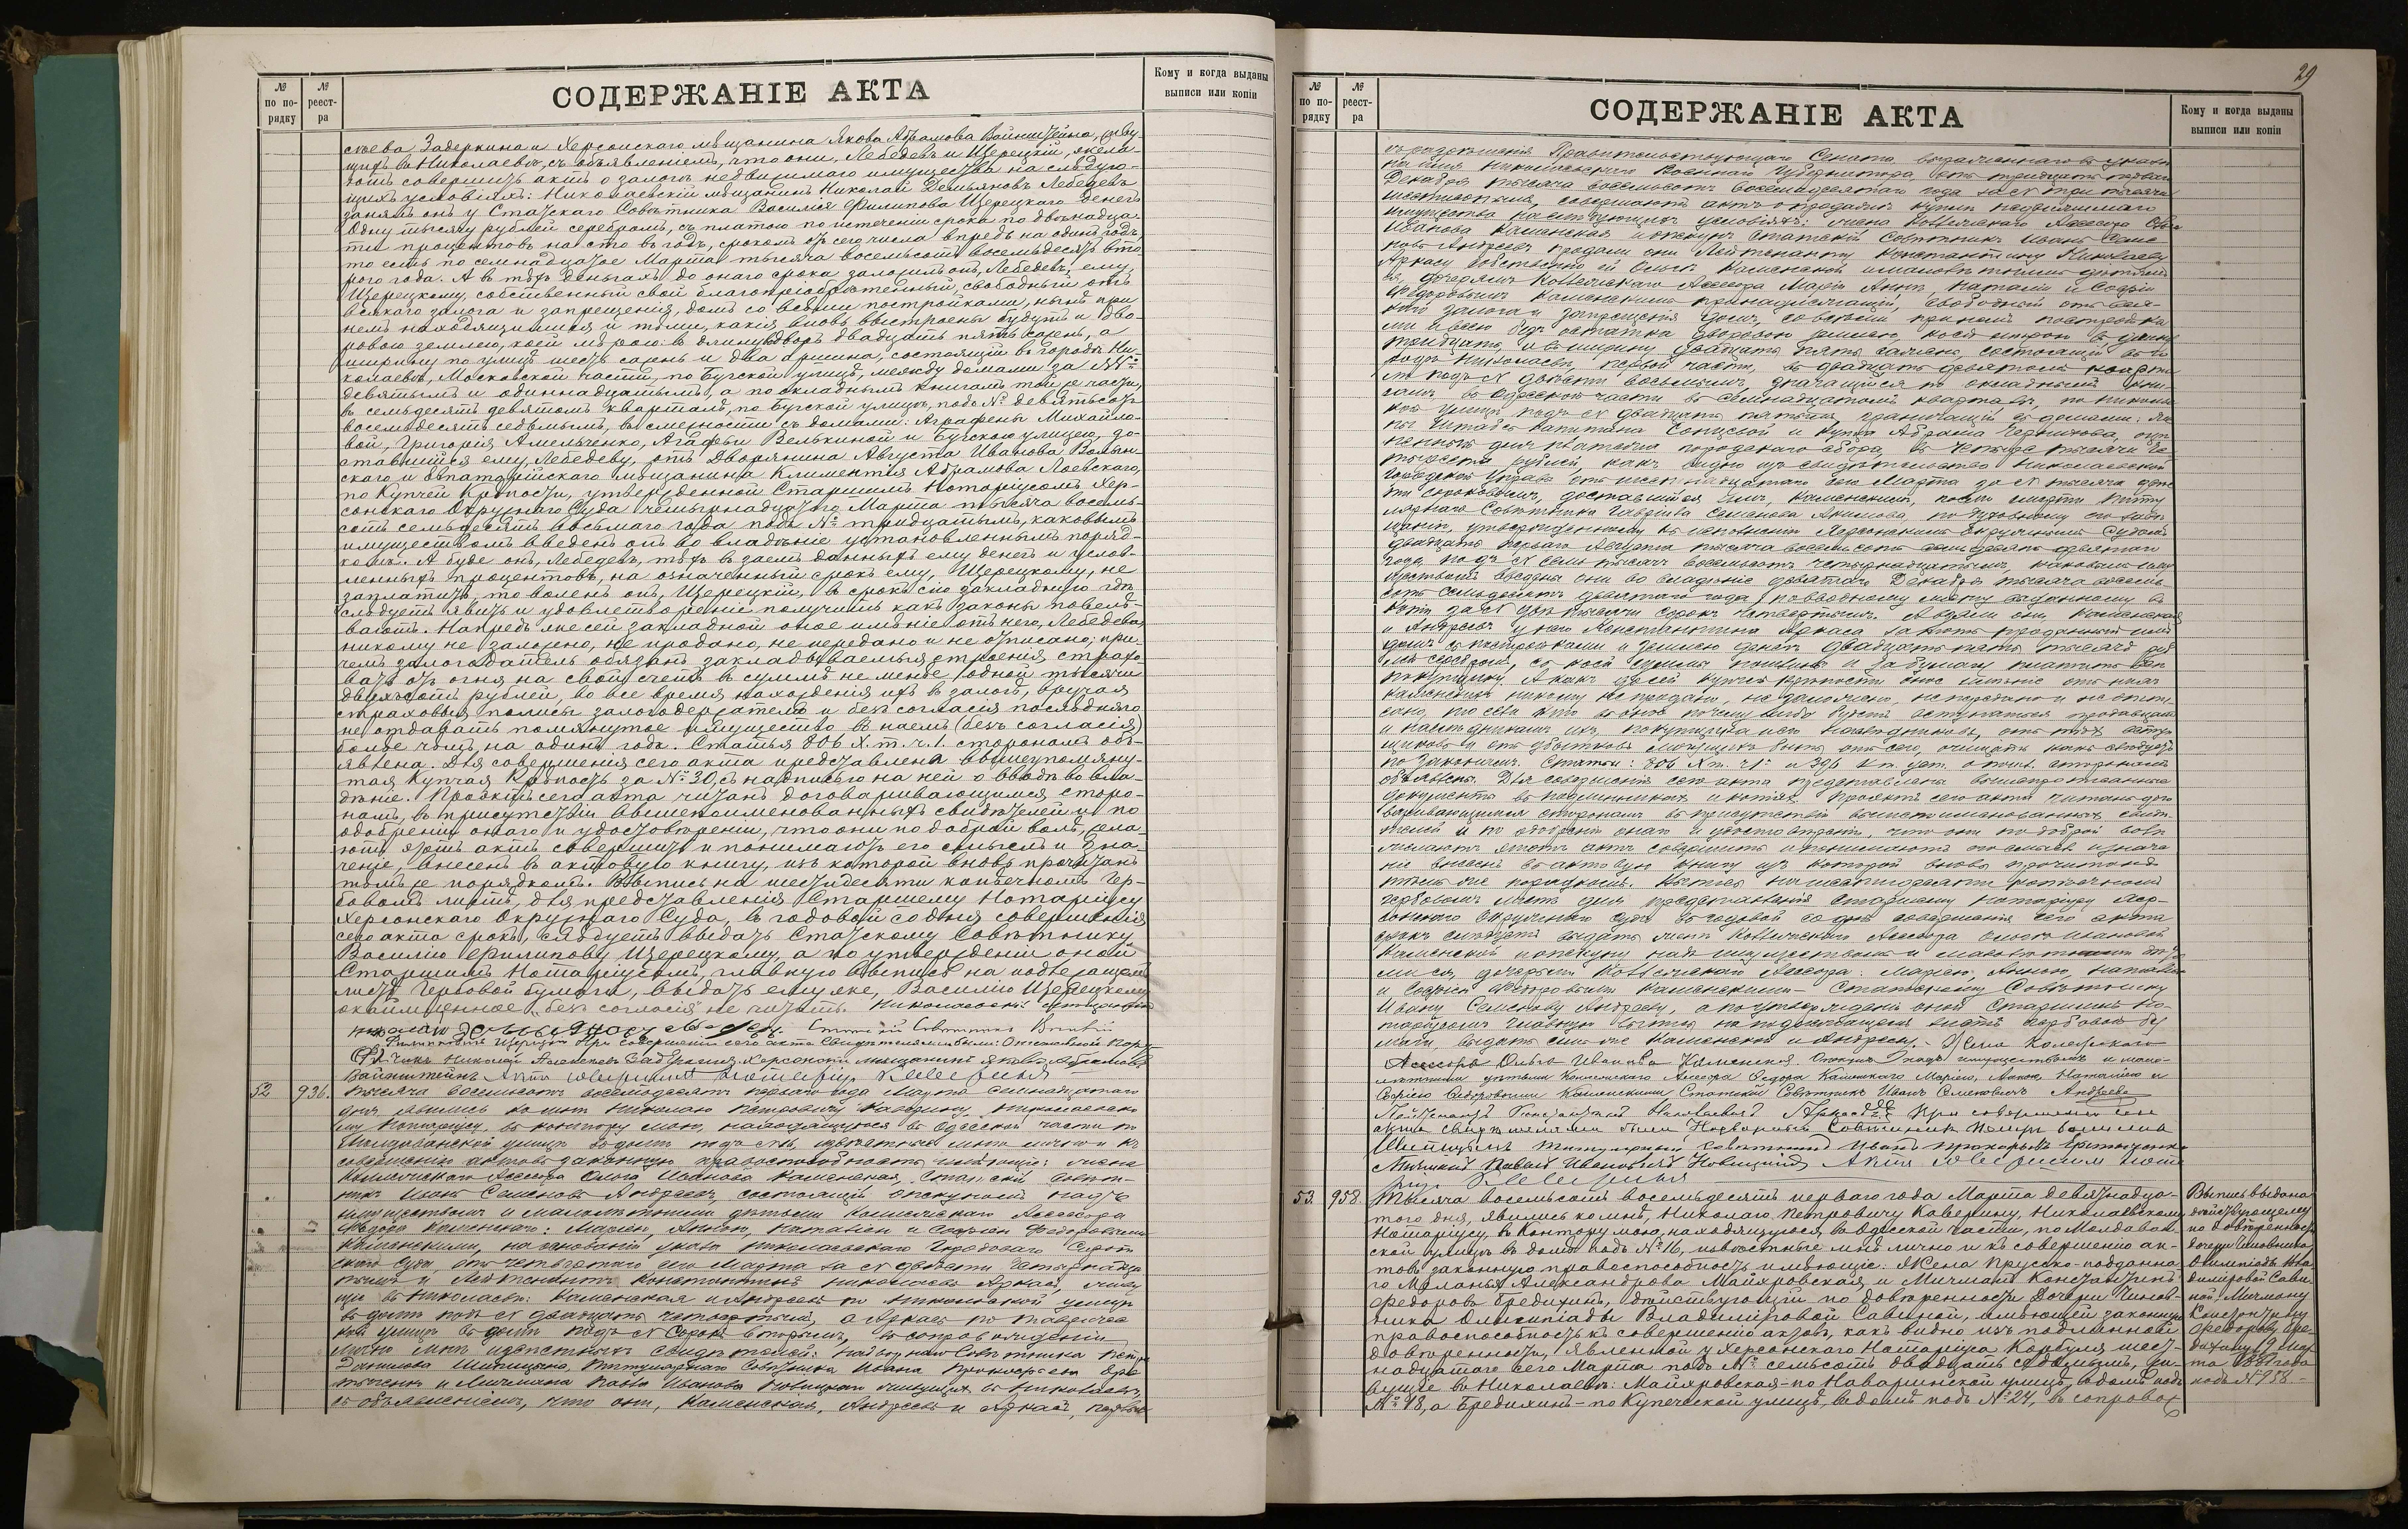 СОДЕРЖАНІЕ АКТА
№ по по- рядку
№ реест- ра
Кому и когда выданы выписи или копіи
скѣева Задеркина и Херсонскаго мѣщанина Якова Абрамова Вайнштейна, живу-
щихъ въ Николаевѣ, съ объявленіемъ, что они, Лебедевъ и Щерецкій, жела-
ютъ совершить актъ о залогѣ недвижимаго имущества на слѣдую-
щихъ условіяхъ: Николаевскій мѣщанинъ Николай Демьяновъ Лебедевъ
занялъ онъ у Статскаго Совѣтника Василія Филипова Щерецкаго денегъ
Одну тысячу рублей серебромъ, съ платою по истеченіи срока по двѣнадца-
ти процентовъ на сто въ годъ, срокомъ отъ сего числа впредь на одинъ годъ
то есть по семнадцатое Марта тысяча восемьсотъ восемьдесятъ вто-
рого года. А въ тѣхъ деньгахъ до онаго срока заложилъ онъ, Лебедевъ, ему,
Щерецкому, собственный свой благопріобрѣтенный, свободный отъ
всякаго залога и запрещенія, домъ со всѣми постройками, нынѣ при
немъ находящимися и тѣми, какія вновь выстроены будутъ и дво-
ровою землею, коей мѣрою: въ длину во дворъ двадцать пять сажень, а
ширину по улицѣ шесть сажень и два аршина, состоящій въ городѣ Ни-
колаевѣ, Московской части, по Бугской улицѣ, между домами за №№
девятымъ и одиннадцатымъ, а по окладнымъ книгамъ той же части,
въ семьдесятъ девятомъ кварталѣ, по Бугской улицѣ, подъ № девятьсотъ
восемьдесятъ седьмымъ, въ смежности съ домами: Аграфены Михайло-
вой, Григорія Амельченко, Агафьи Велькиной и Бугскою улицею, до-
ставшійся ему, Лебедеву, отъ Дворянина Августа Иванова Волын-
скаго и Евпаторійскаго мѣщанина Климентія Абрамова Лоевскаго,
по Купчей Крѣпости, утвержденной Старшимъ Нотаріусомъ Хер-
сонскаго Окружнаго Суда четырнадцатаго Марта тысяча восемь-
сотъ семьдесятъ восьмаго года подъ № тридцатымъ, каковымъ
имуществомъ введенъ онъ во владѣніе установленнымъ поряд-
комъ. А буде онъ, Лебедевъ, тѣхъ въ заемъ данныхъ ему денегъ и услов-
ленныхъ процентовъ, на означенный срокъ ему, Щерецкому, не
заплатитъ, то воленъ онъ, Щерецкій, въ срокъ сію закладную гдѣ
слѣдуетъ явить и удовлетвореніе получить какъ законы повелѣ-
ваютъ. Напредь же сей закладной оное имѣніе отъ него, Лебедева,
никому не заложено, не продано, не передано и не отписано; при-
чемъ залогодатель обязанъ закладываемыя строенія страхо-
вать отъ огня на свой счетъ въ суммѣ не менѣе одной тысячи
двухъсотъ рублей, во все время нахожденія ихъ въ залогѣ, вручая
страховые полисы залогодержателю и безъ согласія послѣдняго
не отдавать помянутое имущество въ наемъ (безъ согласія)
болѣе чѣмъ на одинъ годъ. Статья 806 X. т. ч. 1. сторонамъ объ-
явлена. Для совершенія сего акта представлена вышеупомяну-
тая Купчая Крѣпость за № 30, съ надписью на ней о вводѣ во вла-
дѣніе. Проектъ сего акта читанъ договаривающимся сторо-
намъ, въ присутствіи вышепоименованныхъ свидѣтелей и по
одобреніи онаго и удостовѣреніи, что они по доброй волѣ, жела-
ютъ этотъ актъ совершить и понимаютъ его смыслъ и зна-
ченіе, внесенъ въ актовую книгу, изъ которой вновь прочитанъ
тѣмъ же порядкомъ. Выпись на шестидесяти копѣечномъ гер-
бовомъ листѣ, для представленія Старшему Нотаріусу
Херсонскаго Окружнаго Суда, въ годовой со дня совершенія
сего акта срокъ, слѣдуетъ выдать Статскому Совѣтнику
Василію Филипову Щерецкому, а по утвержденіи оной
Старшимъ Нотаріусомъ, главную выпись на подлежащемъ
листѣ гербовой бумаги, выдать ему же, Василію Щерецкому
окаймленное „безъ согласія“ не читать. Николаевскій мѣщанинъ
Николай Лебедевъ. Статскій Совѣтникъ Василій
Филиповъ Щерецкій При совершеніи сего акта свидѣтелями были:
Николай Алексѣевъ Задеркинъ, Херсонскій мѣщанинъ Яковъ Абрамовъ
Вайнштейнъ Актъ совершилъ Нотаріусъ Каверинъ
52 936. Тысяча восемьсотъ восемьдесятъ перваго года Марта семнадцатаго
дня, явились ко мнѣ Николаю Петровичу Каверину, Николаевско-
му Нотаріусу, въ контору мою, находящуюся въ Одесской части по
Молдаванской улицѣ въ домѣ подъ №16, извѣстные мнѣ лично и къ
совершенію актовъ законную правоспособность имѣющіе: жена
Коллежскаго Ассесора Ольга Иванова Каменская, Статскій Совѣт-
никъ Иванъ Семеновъ Андреевъ, состоящій опекуномъ надъ
имуществомъ и малолѣтними дѣтьми Коллежскаго Ассесора
Федора Каменскаго: Маріею, Анною, Наталіею и Софіею Федоровыми
Каменскими, на основаніи указа Николаевскаго Городоваго Сирот-
скаго Суда, отъ четвертаго сего Марта за № двѣсти четырнадца-
тымъ и Лейтенантъ Константинъ Николаевъ Аркасъ, живу-
щіе въ Николаевѣ: Каменская и Андреевъ по Никольской улицѣ
въ домѣ подъ № двадцать четвертымъ, а Аркасъ по Таврическ-
кой улицѣ въ домѣ подъ № Сорокъ вторымъ, въ сопровожденіи
лично мнѣ извѣстныхъ свидѣтелей: Надворнаго Совѣтника Петра
Данилова Шипицына, Титулярнаго Совѣтника Ивана Прохорова Ере-
тыченко и Мичмана Павла Иванова Новицкаго живущихъ въ Николаевѣ,
съ объявленіемъ, что они, Каменская, Андреевъ и Аркасъ, первые
29
СОДЕРЖАНІЕ АКТА
№ по по- рядку
№ реест- ра
Кому и когда выданы выписи или копіи
съ разрѣшенія Правительствующаго Сената, выраженнаго въ указѣ
на имя Николаевскаго Военнаго Губернатора, отъ тридцать перваго
Декабря тысяча восемьсотъ восемидесятаго года за № три тысячи
совершаютъ актъ о продажѣ купли недвижимаго
имущества на слѣдующихъ условіяхъ: жена Коллежскаго Ассесора Ольга
Иванова Каменская и опекунъ Статскій Совѣтникъ Иванъ Семе-
новъ Андреевъ продали они Лейтенанту Константину Николаеву
Аркасу собственный ей Ольгѣ Каменской и малолѣтнимъ дѣтямъ
ея, дочерямъ Коллежскаго Ассесора Маріи, Аннѣ, Наталіи и Софіи
Федоровымъ Каменскимъ принадлежащій, свободный отъ вся-
каго залога и запрещенія домъ, со всѣми при немъ постройка-
ми и всею безъ остатка дворовою землею, коей мѣрою въ длину
тридцать, а въ ширину двадцать пять сажень, состоящій въ го-
родѣ Николаевѣ, первой части, въ двадцать девятомъ кварта-
лѣ подъ № двѣсти восьмымъ, значащійся по окладнымъ кни-
гамъ въ Одесской части въ семнадцатомъ кварталѣ, по Николь-
ской улицѣ подъ № двадцать пятымъ, граничащій съ домами: же-
ны Штабсъ Капитана Сонцевой и купца Абрама Чернихова, оцѣ-
ненный для платежа городскаго сбора, въ четыре тысячи
рублей, какъ видно изъ свидѣтельства Николаевской
Городской Управы отъ шестнадцатаго сего Марта за № тысяча двѣс-
ти сороковымъ, доставшійся имъ, Каменскимъ, послѣ смерти Титу-
лярнаго Совѣтника Гавріила Семенова Акимова, по духовному его завѣ-
щанію, утвержденному къ исполненію Херсонскимъ Окружнымъ Судомъ
двадцать перваго Августа тысяча восемьсотъ семьдесятъ девятаго
года, подъ № семь тысячъ восемьсотъ четырнадцатымъ, каковымъ иму-
ществомъ введены они во владѣніе девятаго Декабря тысяча восемь-
сотъ семьдесятъ девятаго года, по вводному листу выданному въ
за № двѣ тысячи сорокъ четвертымъ. А взяли они, Каменская
и Андреевъ у него Константина Аркаса за тотъ проданный ими
домъ съ постройками и землею денегъ двадцать пять тысячъ руб-
лей серебромъ, съ коей суммы пошлины и за бумагу платить ему
покупщику. А какъ до сей купчей крѣпости оное имѣніе отъ нихъ
Каменскихъ никому не продано, не заложено, не передано и не отпи-
сано, то если кто въ оное почему либо будетъ вступаться продавцамъ
и наслѣдникамъ ихъ, покупщика и его Наслѣдниковъ, отъ тѣхъ вступ-
щиковъ и отъ убытковъ могущихъ быть отъ сего, очищать какъ слѣдуетъ
по законамъ. Статьи: 806 X т. ч 1: и 396 V т. уст. о пошл. сторонамъ
объявлены. Для совершенія сего акта представлены вышепрописанные
документы въ подлинникахъ и копіяхъ. Проектъ сего акта читанъ дого-
варивающимся сторонамъ въ присутствіи вышепоименованныхъ свидѣ-
телей и по одобреніи онаго и удостовѣреніи, что они по доброй волѣ
желаютъ этотъ актъ совершить и понимаютъ его смыслъ и значе-
ніе внесенъ въ актовую книгу изъ которой вновь прочитанъ
тѣмъ же порядкомъ. Выпись на шестидесяти копѣечномъ
гербовомъ листѣ для представленія Старшему Нотаріусу Хер-
сонскаго Окружнаго Суда въ годовой со дня совершенія сего акта
срокъ слѣдуетъ выдать женѣ Коллежскаго Ассесора Ольгѣ Ивановой
Каменской и опекуну надъ имуществомъ и малолѣтними дѣть-
ми ея, дочерьми Коллежскаго Ассесора: Маріею, Анною, Наталіею
и Софіею Федоровыми Каменскими – Статскому Совѣтнику
Ивану Семенову Андрееву, а по утвержденіи оной Старшимъ Но-
таріусомъ главную выпись на подлежащемъ листѣ гербовой бу-
маги, выдать симъ же Каменской и Андрееву. – Жена Коллежскаго
Ассесора Ольга Иванова Каменская. Опекунъ надъ имуществомъ и мало-
лѣтними дѣтьми Коллежскаго Ассесора Федора Каменскаго Маріею, Анною, Наталіею и
Софіею Федоровыми Каменскими Статскій Совѣтникъ Иванъ Семеновичъ Андреевъ
Лейтенантъ Константинъ Николаевичъ Аркасъ При совершеніи сего
акта свидѣтелями были: Надворный Совѣтникъ Петръ Даниловъ
Шипицынъ Титулярный Совѣтникъ Иванъ Прохоровъ Еретыченко
Мичманъ Павелъ Ивановичъ Новицкій Актъ совершилъ Нота-
ріусъ Каверинъ
53. 958. Тысяча восемьсотъ восемьдесятъ перваго года Марта девятнадца-
таго дня, явились ко мнѣ, Николаю Петровичу Каверину, Николаевскому
Нотаріусу, въ Контору мою, находящуюся, въ Одесской части, по Молдаван-
ской улицѣ въ домѣ подъ № 16, извѣстные мнѣ лично и къ совершенію ак-
товъ законную правоспособность имѣющіе: Жена Прусско-подданна-
го Меланья Александрова Майяровская, и Мичманъ Константинъ
Федоровъ Бредихинъ, дѣйствующій по довѣренности Дочери Чинов-
ника Олимпіады Владиміровой Савиной, имѣющей законную
правоспособность къ совершенію актовъ, какъ видно изъ подлинной
довѣренности, явленной у Херсонскаго Нотаріуса Корбуля шест-
надцатаго сего Марта подъ № семьсотъ двадцать седьмымъ, жи-
вущіе въ Николаевѣ: Майяровская – по Наваринской улицѣ, въ домѣ подъ
№ 18, а Бредихинъ – по Купеческой улицѣ, въ домѣ подъ № 24, въ сопровож
Выпись выдана
дѣйствующему
по довѣренности
дочери Чиновника
Олимпіады Вла-
диміровой Сави-
ной, Мичману
Константину
Федорову Бре-
дихину, 19 Мар-
та 1881 года
подъ № 958 –